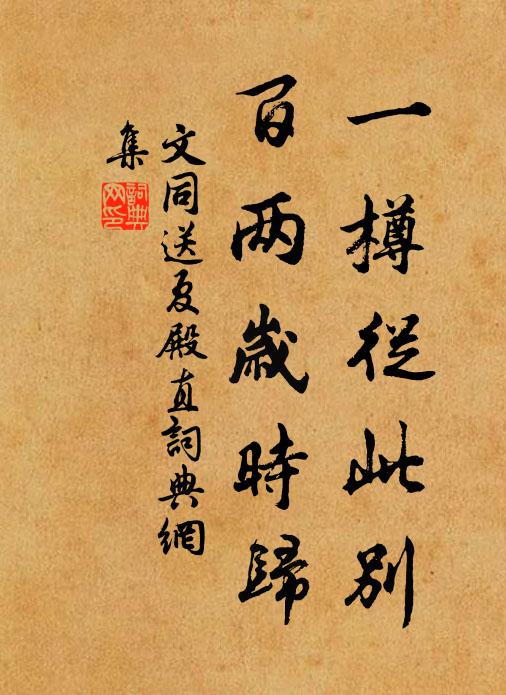 一樽從此別
百两歲時歸
文同送夏殿直詞典網
集
詞典
网印